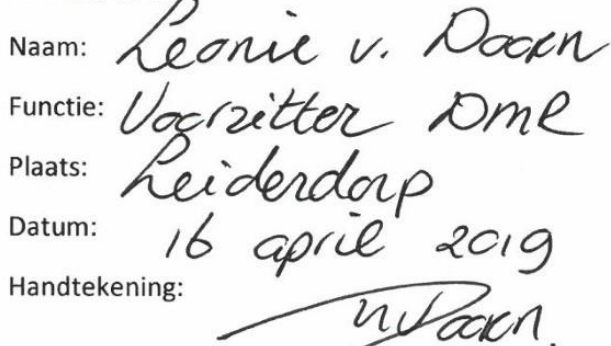 Naam: Leonie v. Doorn
Functie: Voorzitter DMR
Plaats: Leiderdorp
Datum: 16 april 2019
Handtekening: LvDoorn.